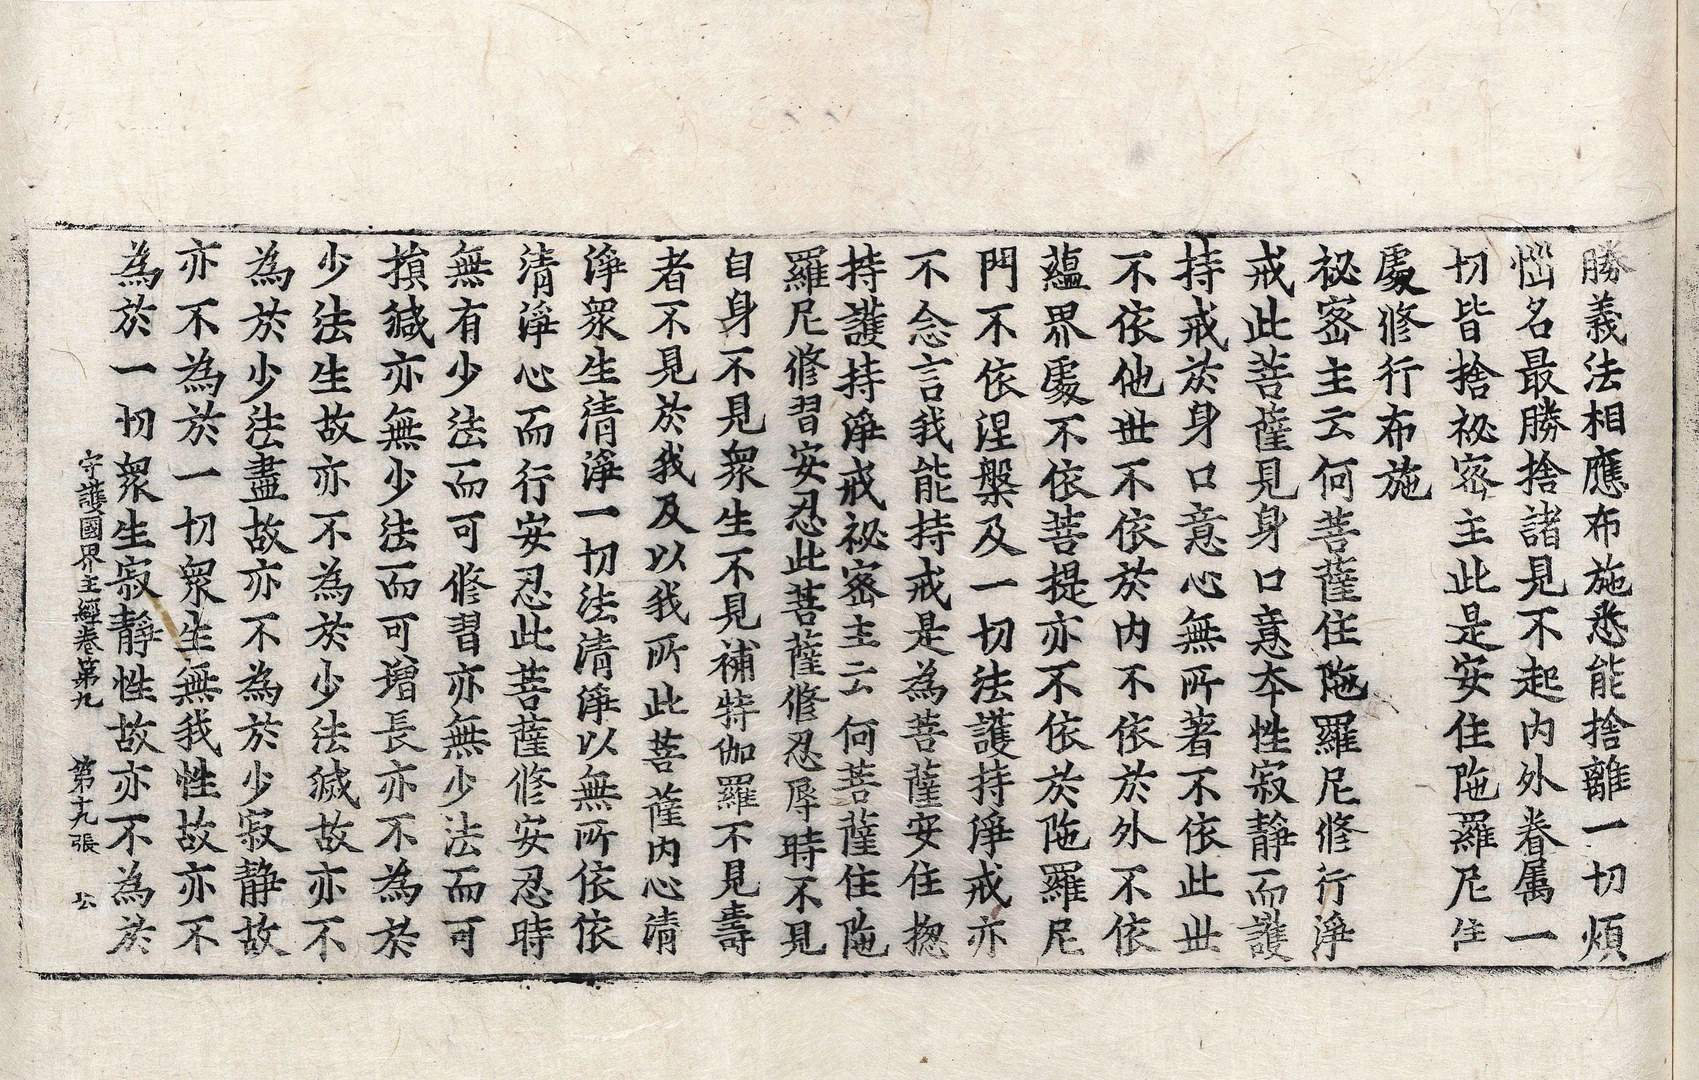 勝義法相應布施悉能捨離一切煩
惱名最勝捨諸見不起内外眷属一
切皆捨祕密主此是安住陁羅尼住
處修行布施
祕密主云何菩薩住陁羅尼修行淨
戒此菩薩見身口意夲性寂靜而護
持戒於身口意心無所著不依此世
不依他世不依於内不依於外不依
蘊界處不依菩提亦不依於陁羅尼
門不依涅槃及一切法護持淨戒亦
不念言我能持戒是為菩薩安住捴
持護持淨戒祕密主云何菩薩住陁
羅尼修習安忍此菩薩修忍辱時不見
自身不見衆生不見補特伽羅不見壽
者不見於我及以我所此菩薩内心清
淨衆生清淨一切法清淨以無所依依
清淨心而行安忍此菩薩修安忍時
無有少法而可修習亦無少法而可
損減亦無少法而可增長亦不為於
少法生故亦不為於少法減故亦不
為於少法盡故亦不為於少寂静故
亦不為於一切衆生無我性故亦不
為於一切衆生寂靜性故亦不為於
守護國界主經卷第九 第十九張 公